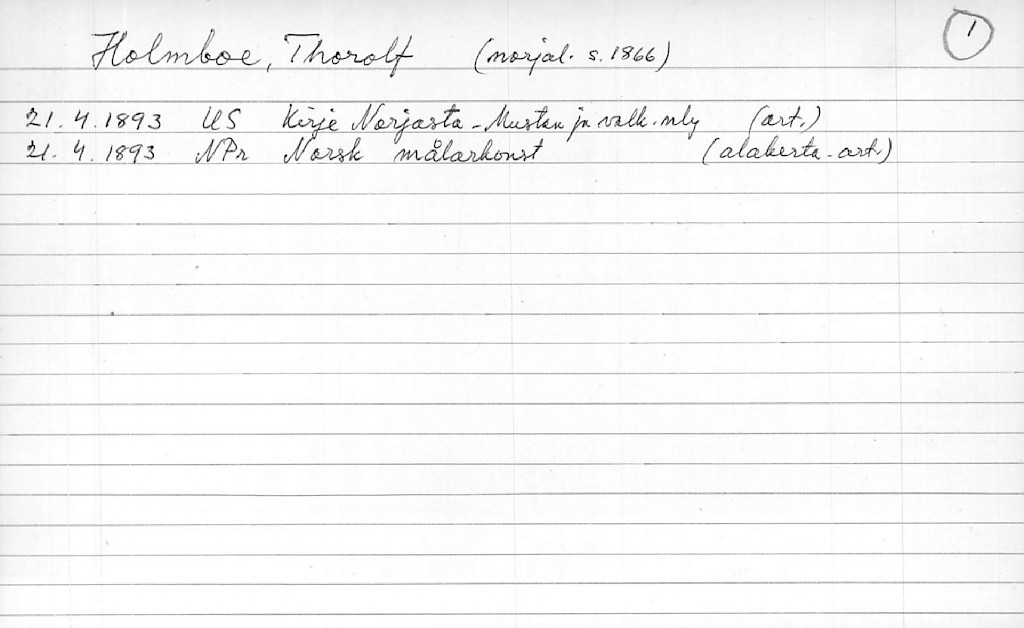 Holmboe, Thorolf (norjal. s. 1866) 1
21. 4. 1893 US Kirje Norjasta - Mustan ja valk. nly (art.)
21. 4. 1893 NPr Norsk målarkonst (alakerta - art.)